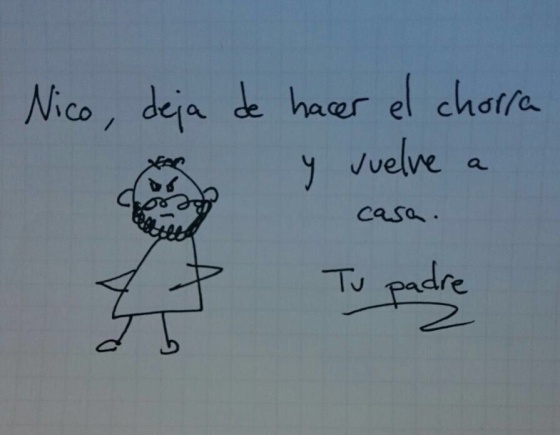 Nico, deja de hacer el chorra
y vuelve a
casa.
Tu padre